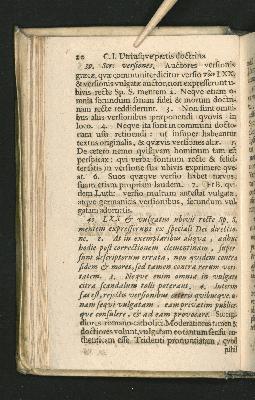 20 C. I. Utriusque partis doctrina
39. Scr. versiones. Auctores versionis
græcæ, quæ communiter dicitur versio τῶν LXX,
& versionis vulgatæ auctor, non expresserunt u-
bivis recte Sp. S. mentem 2. Neque etiam o-
mnia secundum sanam fidei & morum doctri-
nam recte reddiderunt. 3. Non sunt omni-
bus aliis versionibus præponendi quovis in
loco. 4. Neque ita sunt in communi docto-
rum usu retinendi: ut insuper habeantur
textus originalis, & quævis versiones aliæ.
De cætero nemo quisquam hominum tam est
perspicax: qui verba fontium recte & felici-
ter satis in versione sua ubivis exprimere que-
at. 6. Suos quæque versio habet nævos;
suam etiam propriam laudem. 7.
dem Luth: versio multum antestat vulgatæ,
atque germanicis versionibus, secundum vul-
gatam adornatis.
40. LXX & vulgatus ubivis recte Sp. S.
mentem expresserunt ex speciali Dei directio-
ne. 2. At in exemplaribus aliqua, adhuc
hodie post correctionem clementinam, super-
sunt descriptorum errata, non quidem contra
fidem & mores, sed tamen contra rerum veri-
tatem. 3. Neque enim omnia in vulgata
citra scandalum tolli poterant. 4. Interim
fas est, rejectis versionibus cæteris quibusque, u-
nam sequi vulgatam, eam privatim publice-
que consulere, & ad eam provocare.
diores romano-catholici: Moderatiores tamen &
doctiores volunt, vulgatam eo tantum sensu au-
thenticam esse Tridenti pronuntiatam, quod
nihil